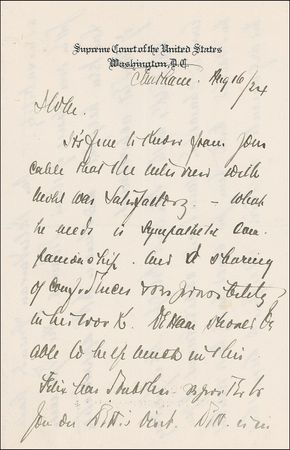 Supreme Court of the United States
Washington, D.C.
Chatham. Aug 16/24
It's fine to know from your
cable that the interview with
was satisfactory. - What
he needs is sympathetic com-
panionship. And a sharing
of confidences responsibility
in his work. should be
able to help much in this
Felix has
you on visit. is in